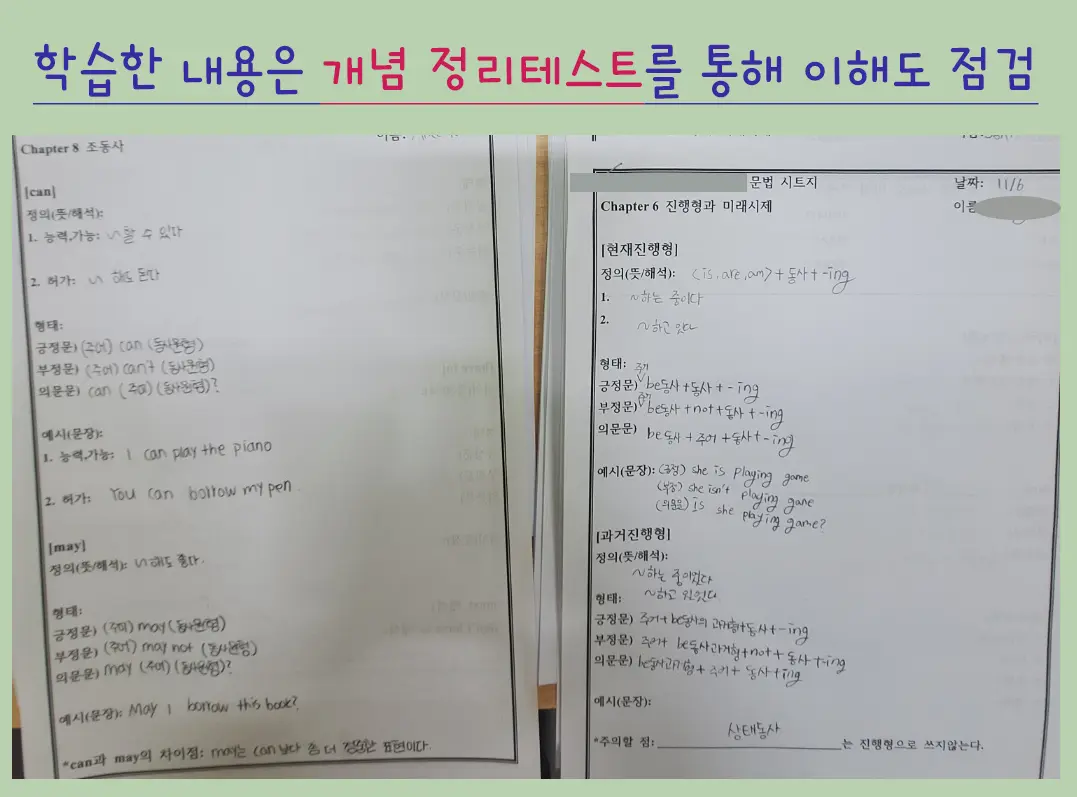 학습한 내용은 개념 정리테스트를 통해 이해도 점검
Chapter 8 조동사
[can]
정의(뜻/해석):
1. 능력,가능: ~할 수 있다
2. 허가: ~ 해도 된다
형태:
긍정문) (주어) can (동사원형)
부정문) (주어) can't (동사원형)
의문문) can (주어) (동사원형)?
예시(문장):
1. 능력,가능: I can play the piano
2. 허가: You can borrow my pen.
[may]
정의(뜻/해석): ~해도 좋다.
형태:
긍정문) (주어) may (동사원형)
부정문) (주어) may not (동사원형)
의문문) may (주어) (동사원형)?
예시(문장): May I borrow this book?
*can과 may의 차이점: may는 can 보다 좀 더 정중한 표현이다.
문법 시트지 날짜: 11/6
Chapter 6 진행형과 미래시제 이름
[현재진행형]
정의(뜻/해석): (is, are, am) + 동사 + -ing
1. ~하는 중이다
2. ~하고 있다
형태: 주어
긍정문) be동사 + 동사 + -ing
주어
부정문) be동사 + not + 동사 + -ing
의문문) be동사 + 주어 + 동사 + -ing
예시(문장): (긍정) she is playing game
(부정) she isn't playing game
(의문문) is she playing game?
[과거진행형]
정의(뜻/해석):
~하는 중이었다
~하고 있었다
형태:
긍정문) 주어 + be동사의 과거형 + 동사 + -ing
부정문) 주어 + be동사 과거형 + not + 동사 + -ing
의문문) be동사 과거형 + 주어 + 동사 + ing
예시(문장):
*주의할 점: 상태동사 는 진행형으로 쓰지않는다.